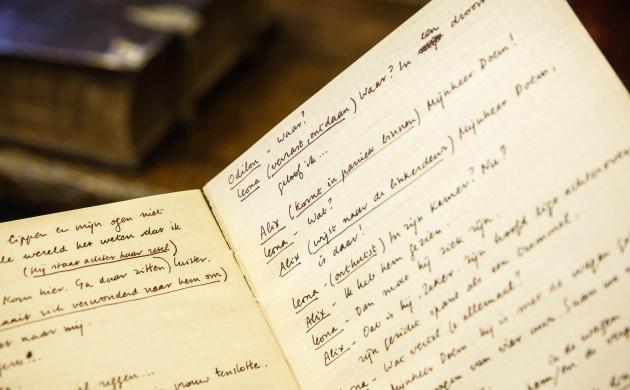 lippen en mijn ogen niet
de wereld het weten dat ik
(Hij staat achter haar zetel)
Kom hier. Ga daar zitten) luister.
zich verwonderd naar hem om)
naar mij.
zeggen...
vrouw tenslotte.
Odilon - Waar?
Leona (verrast, ontdaan) Waar? In een droom
geloof ik...
Alix (komt in paniek binnen) Mijnheer Doem!
Leona - Wat?
Alix (wijst naar de linkerdeur) Mijnheer Doem,
is daar!
Leona - (onthutst) In zijn kamer? Nu?
Alix - Ik heb hem gezien.
Leona - Dan moet hij ziek zijn.
Alix - Dat is hij. Zeker. Zijn hoofd ligt achterover
zijn gezicht spant als een trommel.
Leona - Wat vertel je allemaal?
Mijnheer Doem. Hij is met de wagen
van vier uur.
in de wagen